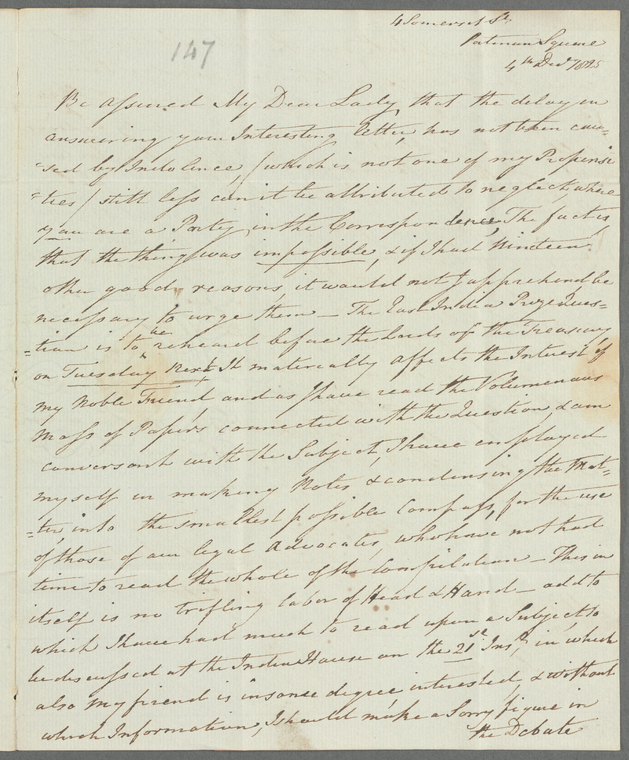 147
4 Somerset St.
Putman Square
4th Decr 1825
Be assured My Dear Lady, that the delay in
answering your Interesting letter, has not been cau=
=sed by Indolence, (which is not one of my Propensi
=ties) still less can it be attributed to neglect, where
you are a Party in the Correspondence. The fact is,
that the thing was impossible, & if I had Nineteen
other good reasons, it would not I apprehend be
necessary to urge them — The East India Prize Ques=
=tion is to be reheard before the Lords of the Treasury
on Tuesday next. It materially affects the Interest of
my Noble Friend and as I have read the Volumenous
Mass of Papers connected with the Question, & am
conversant with the Subject, I have employed
myself in making Notes & condensing the Mat=
=ter into the smallest possible Compass, for the use
of those of our legal Advocates, who have not had
time to read the whole of the Compilation — This in
itself is no trifling labor of Head & Hand — add to
which I have had much to read upon a Subject to
be discussed at the India House on the 21st Inst. in which
also my friend is in some degree interested, & without
which Information, I should make a Sorry figure in
the Debate